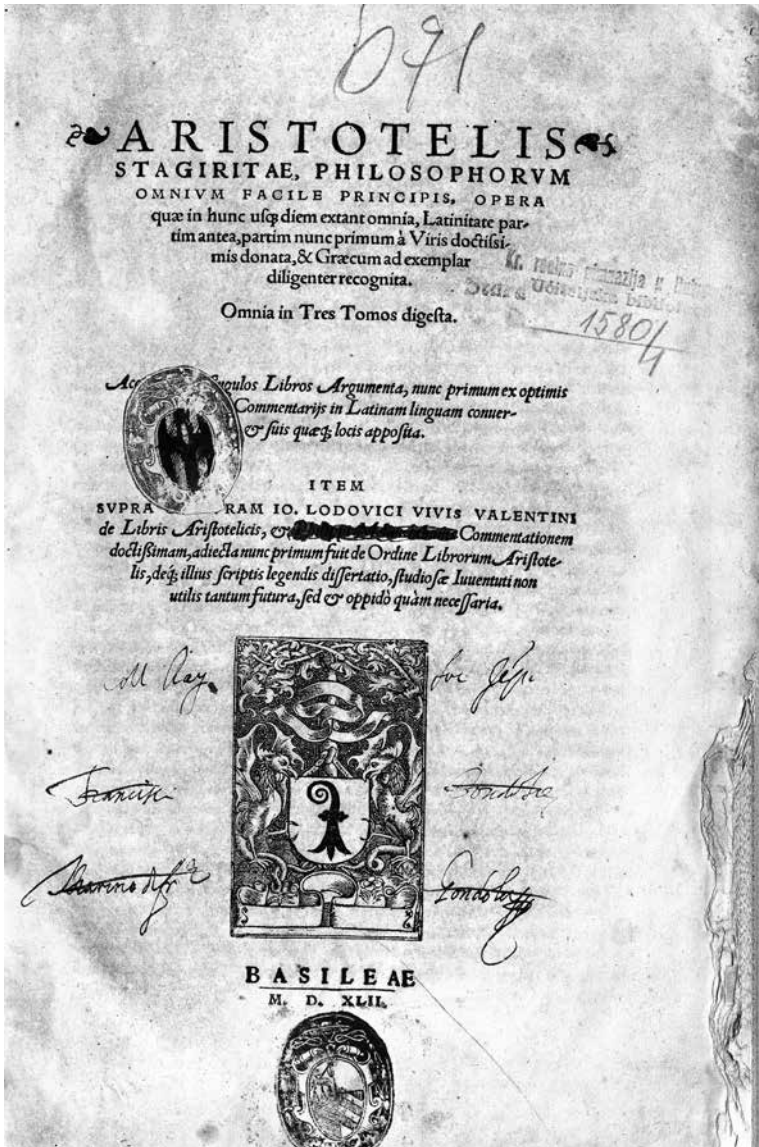 091
ARISTOTELIS
STAGIRITAE, PHILOSOPHORVM
OMNIVM FACILE PRINCIPIS, OPERA
quæ in hunc usq; diem extant omnia, Latinitate par-
tim antea, partim nunc primum à Viris doctissi-
mis donata, & Græcum ad exemplar
diligenter recognita.
Omnia in Tres Tomos digesta.
Kr. realna gimnazija u
1580/1
gulos Libros Argumenta, nunc primum ex optimis
Commentarijs in Latinam linguam conuer-
& suis quæq; locis apposita.
ITEM
SVPRA RAM IO. LODOVICI VIVIS VALENTINI
de Libris Aristotelicis, & Commentationem
doctißimam, adiecta nunc primum fuit de Ordine Librorum Aristote-
lis, deq; illius scriptis legendis dissertatio, studiosæ Iuuentuti non
utilis tantum futura, sed & oppidò quàm necessaria.
Francisci
BASILEAE
M. D. XLII.